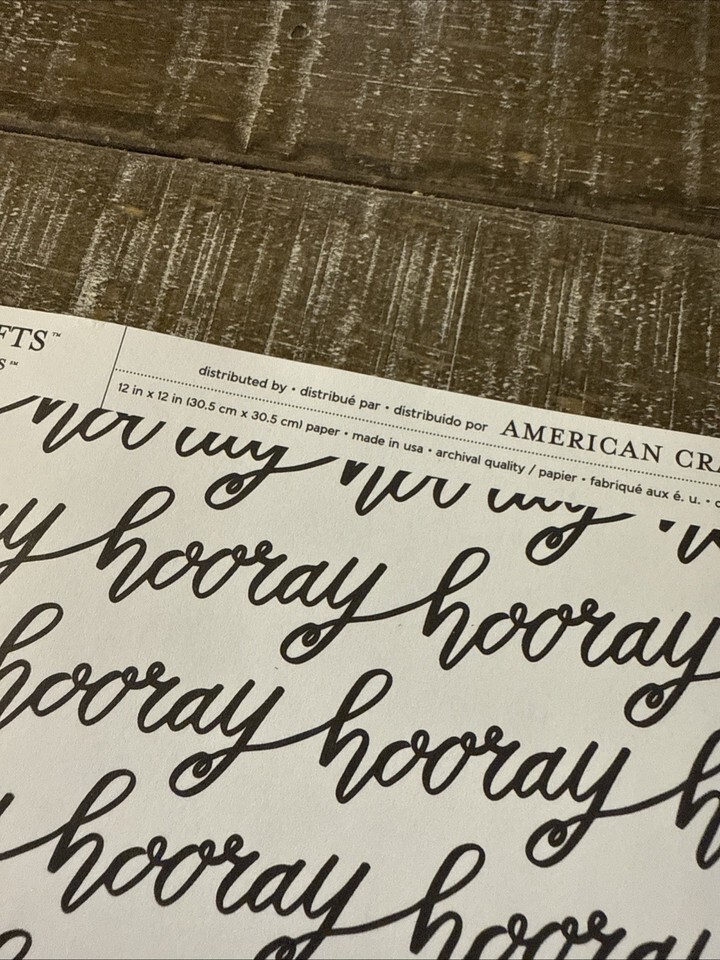 FTS™
S™
distributed by • distribué par • distribuido por AMERICAN CRA
12 in x 12 in (30.5 cm x 30.5 cm) paper • made in usa • archival quality / papier • fabriqué aux é. u. •
hooray hooray
hooray hooray
hooray hooray
hooray hooray